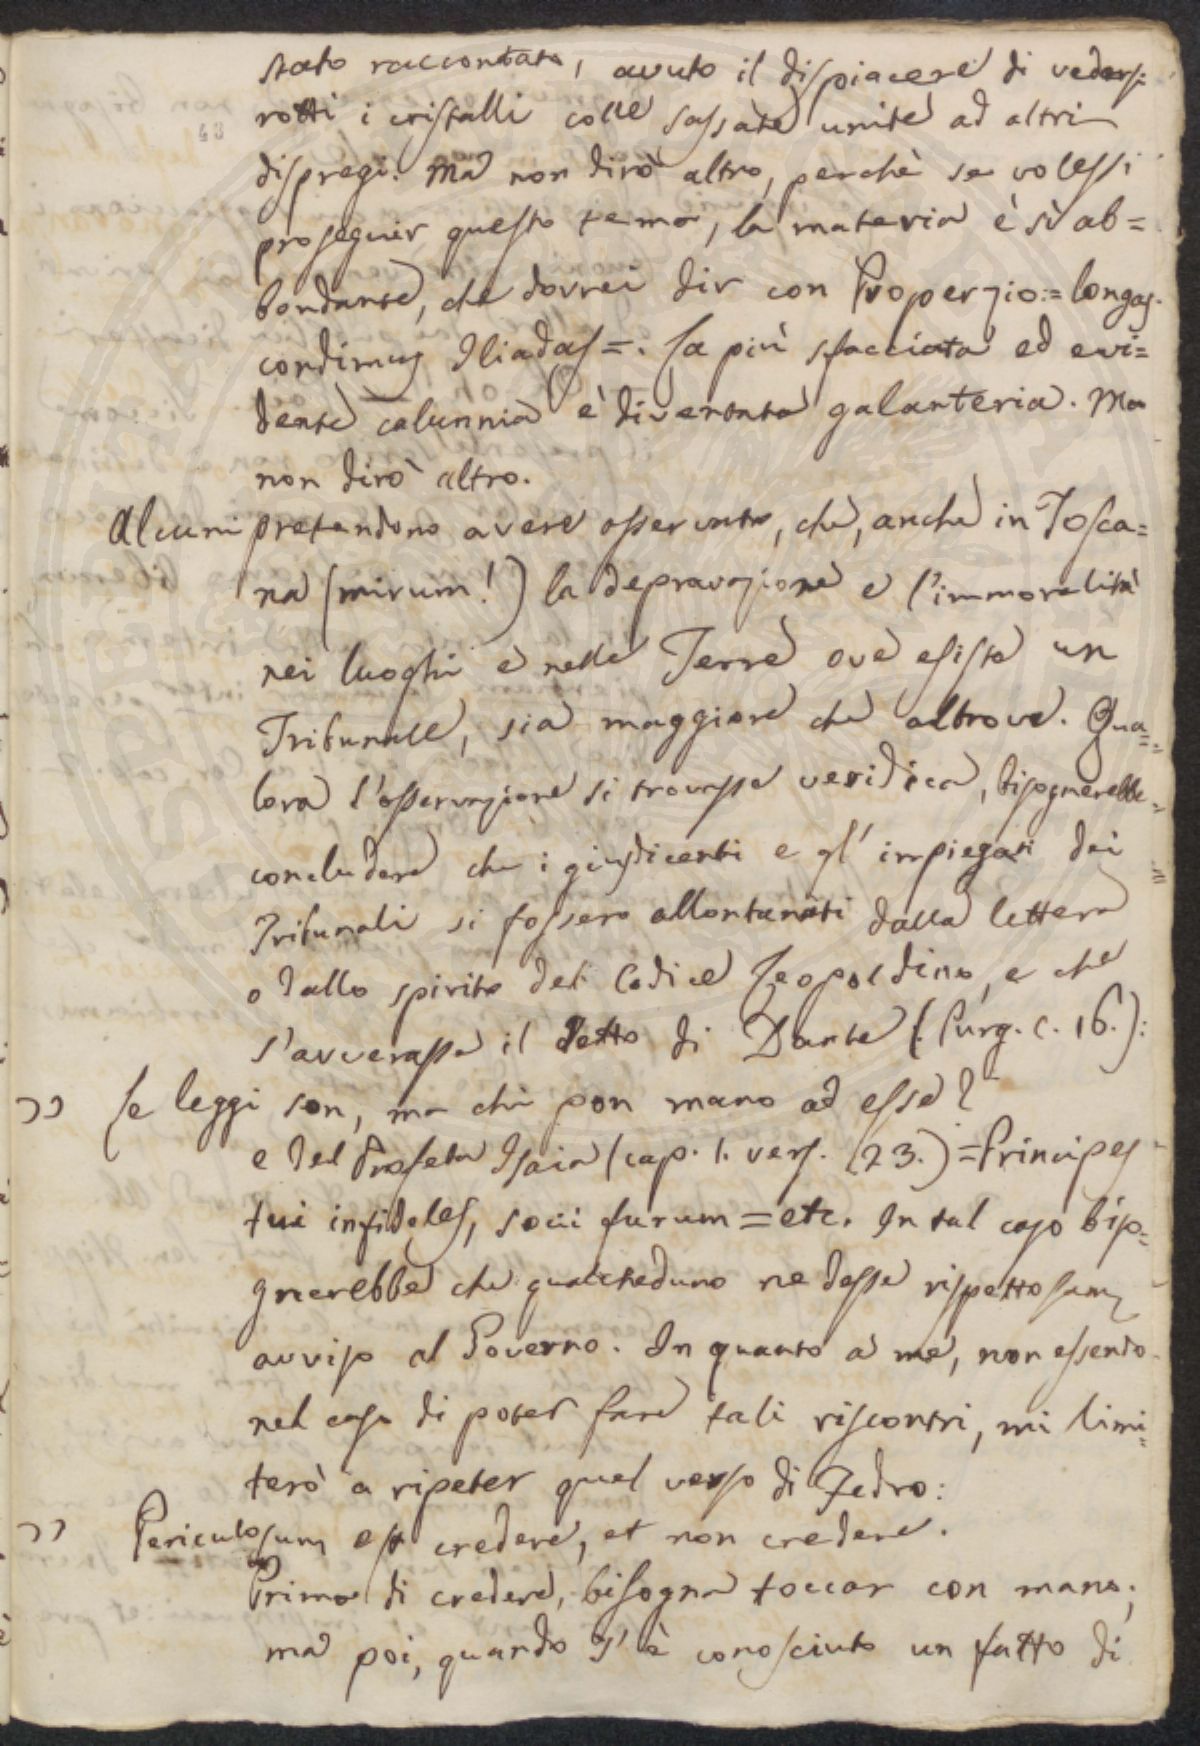 stato raccontato, avuto il dispiacere di vedersi
rotti i cristalli colle sassate unite ad altri
dispregi. Ma non dirò altro, perchè se volessi
proseguir questo tema, la materia è sì ab=
bondante, che dovrei dir con Properzio:= longas
condimus Iliadas=. La più sfacciata ed evi=
dente calunnia è diventata galanteria. Ma
non dirò altro.
Alcuni pretendono avere osservato, che, anche in Tosca=
na (mirum!) la depravazione e l'immoralità
nei luoghi e nelle Terre ove esiste un
Tribunale, sia maggiore che altrove. Qua=
lora l'osservazione si trovasse veridica, bisognerebbe
concludere che i giusdicenti e gl' impiegati dei
Tribunali si fossero allontanati dalla lettera
o dallo spirito del Codice Leopoldino, e che
s'avverasse il detto di Dante (Purg. c. 16.):
" Le leggi son, ma chi pon mano ad esse?
e del Profeta Isaia (cap. 1. vers. 23.) = Principes
tui infideles, socii furum = etc. In tal caso biso=
gnerebbe che qualcheduno ne desse rispettosam.
avviso al Governo. In quanto a me, non essendo
nel caso di poter fare tali riscontri, mi limi=
terò a ripeter quel verso di Fedro:
" Periculosum est credere, et non credere.
Prima di credere, bisogna toccar con mano;
ma poi, quando s'è conosciuto un fatto di